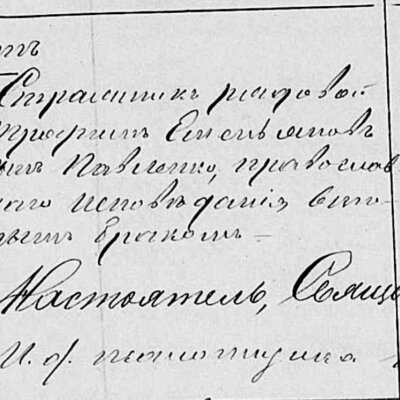 тъ
Стражникъ рядовой
Трофимъ Емельяновъ
инъ Павленко, православ
наго исповѣданія вто
рымъ бракомъ —
Настоятель, Свящ
И. д. псаломщика